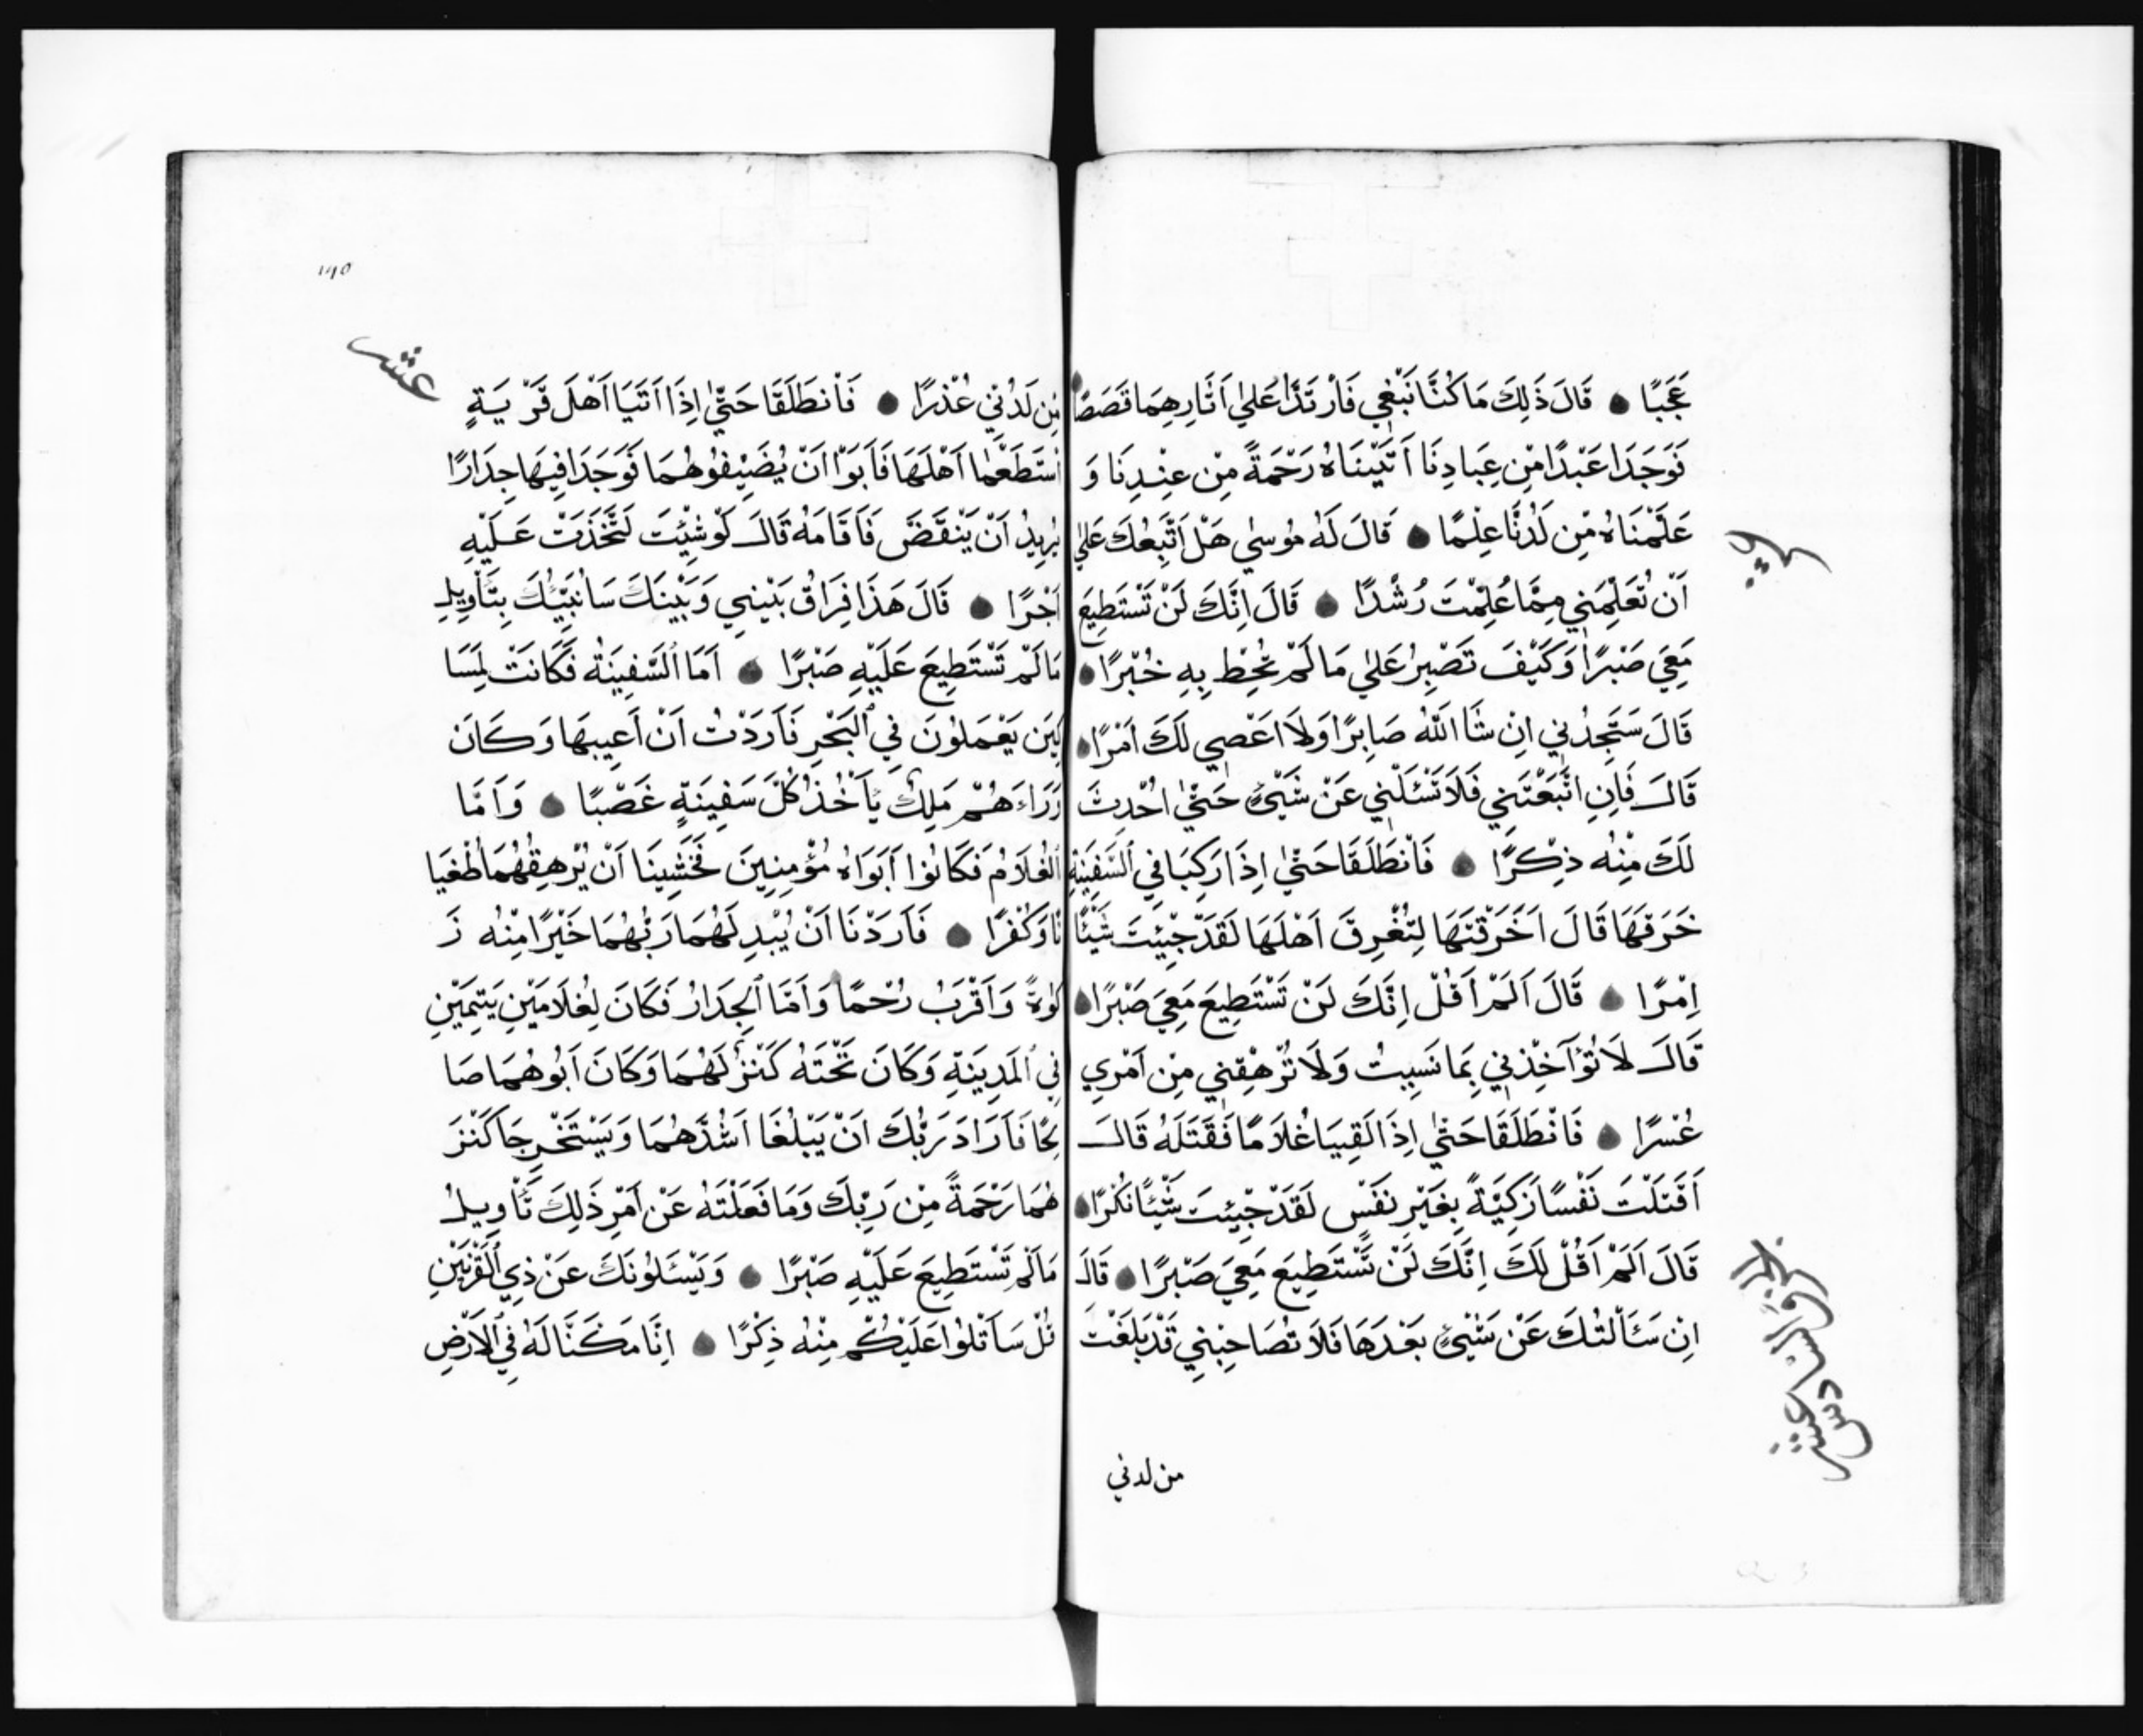 عَجَبًا قَالَ ذَلِكَ مَا كُنَّا نَبْغِي فَارْتَدَّا عَلَىٰ اَثَارِهِمَا قَصَصًا
فَوَجَدَا عَبْدًا مِّن عِبَادِنَا اَتَيْنَاهُ رَحْمَةً مِّن عِنْدِنَا وَ
عَلَّمْنَاهُ مِّن لَدُنَّا عِلْمًا قَالَ لَهُ مُوسٰي هَلْ اَتَّبِعُكَ عَلىٰ
اَنْ تُعَلِّمَنِي مِمَّا عُلِّمْتَ رُشْدًا قَالَ اِنَّكَ لَنْ تَسْتَطِيعَ
مَعِيَ صَبْرًا وَكَيْفَ تَصْبِرُ عَلىٰ مَا لَمْ تُحِطْ بِهِ خُبْرًا
قَالَ سَتَجِدُنِي اِنْ شَا اللّٰهُ صَابِرًا وَلَا اَعْصِي لَكَ اَمْرًا
قَالَ فَاِنِ اتَّبَعْتَنِي فَلَا تَسْئَلْنِي عَنْ شَيْئٍ حَتّٰي اُحْدِثَ
لَكَ مِنْهُ ذِكْرًا فَانْطَلَقَا حَتّٰي اِذَا رَكِبَا فِي السَّفِينَةِ
خَرَقَهَا قَالَ اَخَرَقْتَهَا لِتُغْرِقَ اَهْلَهَا لَقَدْ جِيْئِتَ شَيْئًا
اِمْرًا قَالَ اَلَمْ اَقُلْ اِنَّكَ لَنْ تَسْتَطِيعَ مَعِيَ صَبْرًا
قَالَ لَا تُؤَاخِذْنِي بِمَا نَسِيتُ وَلَا تُرْهِقْنِي مِن اَمْرِي
عُسْرًا فَانْطَلَقَا حَتّٰي اِذَا لَقِيَا غُلَامًا فَقَتَلَهُ قَالَ
اَقَتَلْتَ نَفْسًا زَكِيَّةً بِغَيْرِ نَفْسٍ لَقَدْ جِيْئِتَ شَيْئًا نُكْرًا
قَالَ اَلَمْ اَقُلْ لَكَ اِنَّكَ لَنْ تَسْتَطِيعَ مَعِيَ صَبْرًا قَالَ
اِنْ سَئَالْتُكَ عَنْ شَيْئٍ بَعْدَهَا فَلَا تُصَاحِبْنِي قَدْ بَلَغْتَ
من لدني
الجزؤ السادس عشر
عشر
مِّن لَدُنِّي عُذْرًا فَانْطَلَقَا حَتّٰي اِذَا اَتَيَا اَهْلَ قَرْيَةٍ
اسْتَطَعْمَا اَهْلَهَا فَاَبَوْا اَنْ يُضَيِّفُوهُمَا فَوَجَدَا فِيهَا جِدَارًا
يُرِيدُ اَنْ يَنْقَضَّ فَاَقَامَهُ قَالَ لَوْ شِيْئتَ لَتَّخَذْتَ عَلَيْهِ
اَجْرًا قَالَ هَذَا فِرَاقُ بَيْنِي وَبَيْنَكَ سَاُنَبِّيُكَ بِتَأْوِيلِ
مَا لَمْ تَسْتَطِيعَ عَلَيْهِ صَبْرًا اَمَّا السَّفِينَةُ فَكَانَتْ لِمَسَا
كِينَ يَعْمَلُونَ فِي الْبَحْرِ فَاَرَدْتُ اَنْ اَعِيبهَا وَكَانَ
وَرَاءَهُمْ مَلِكٌ يَأْخُذُ كُلَّ سَفِينَةٍ غَصْبًا وَاَمَّا
الْغُلَامُ فَكَانُوا اَبَوَاهُ مُؤْمِنِينَ فَخَشِينَا اَنْ يُرْهِقُهُمَا طُغْيَا
نًا وَكُفْرًا فَاَرَدْنَا اَنْ يُبْدِلَهُمَا رَبُّهُمَا خَيْرًا مِّنْهُ زَ
كٰوةً وَاَقْرَبُ رُحْمًا وَاَمَّا الْجِدَارُ فَكَانَ لِغُلَامَيْنِ يَتِيمَيْنِ
فِي الْمَدِينَةِ وَكَانَ تَحْتَهُ كَنْزٌ لَهُمَا وَكَانَ اَبُوهُمَا صَا
لِحًا فَاَرَادَ رَبُّكَ اَنْ يَبْلُغَا اَشُدَّهُمَا وَيَسْتَخْرِجَا كَنْزَ
هُمَا رَحْمَةً مِّن رَبِّكَ وَمَا فَعَلْتَهُ عَنْ اَمْرِ ذَلِكَ تَأْوِيلُ
مَا لَمْ تَسْتَطِيعَ عَلَيْهِ صَبْرًا وَيَسْئَلُونَكَ عَنْ ذِي الْقَرْنَيْنِ
قُلْ سَاَتْلُوا عَلَيْكُمْ مِنْهُ ذِكْرًا اِنَّا مَكَنَّا لَهُ فِي الْاَرْضِ